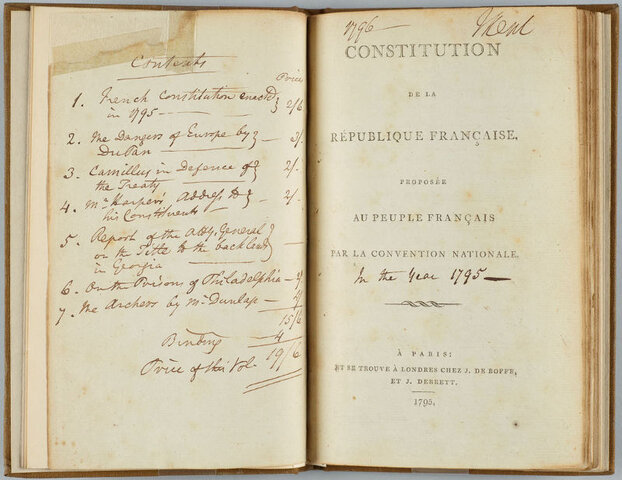 Contents
Price
1. French Constitution enacted
in 1795 — 2/6
2. The Dangers of Europe by
DuPan —
3. Camillus in Defence of
the Treaty — 2/.
4. Mr Harper's Address to
his Constituents — 2/.
5. Report of the Atty. General
on the Title to the back land
in Georgia
6. On the Prisons of Philadelphia —
7. The Archers by Mr Dunlap —
15/6
Binding 4
Price of this Vol. 19/6
1796
CONSTITUTION
DE LA
RÉPUBLIQUE FRANÇAISE,
PROPOSÉE
AU PEUPLE FRANÇAIS
PAR LA CONVENTION NATIONALE.
In the Year 1795 —
À PARIS:
ET SE TROUVE À LONDRES CHEZ J. DE BOFFE,
ET J. DEBRETT.
1795.